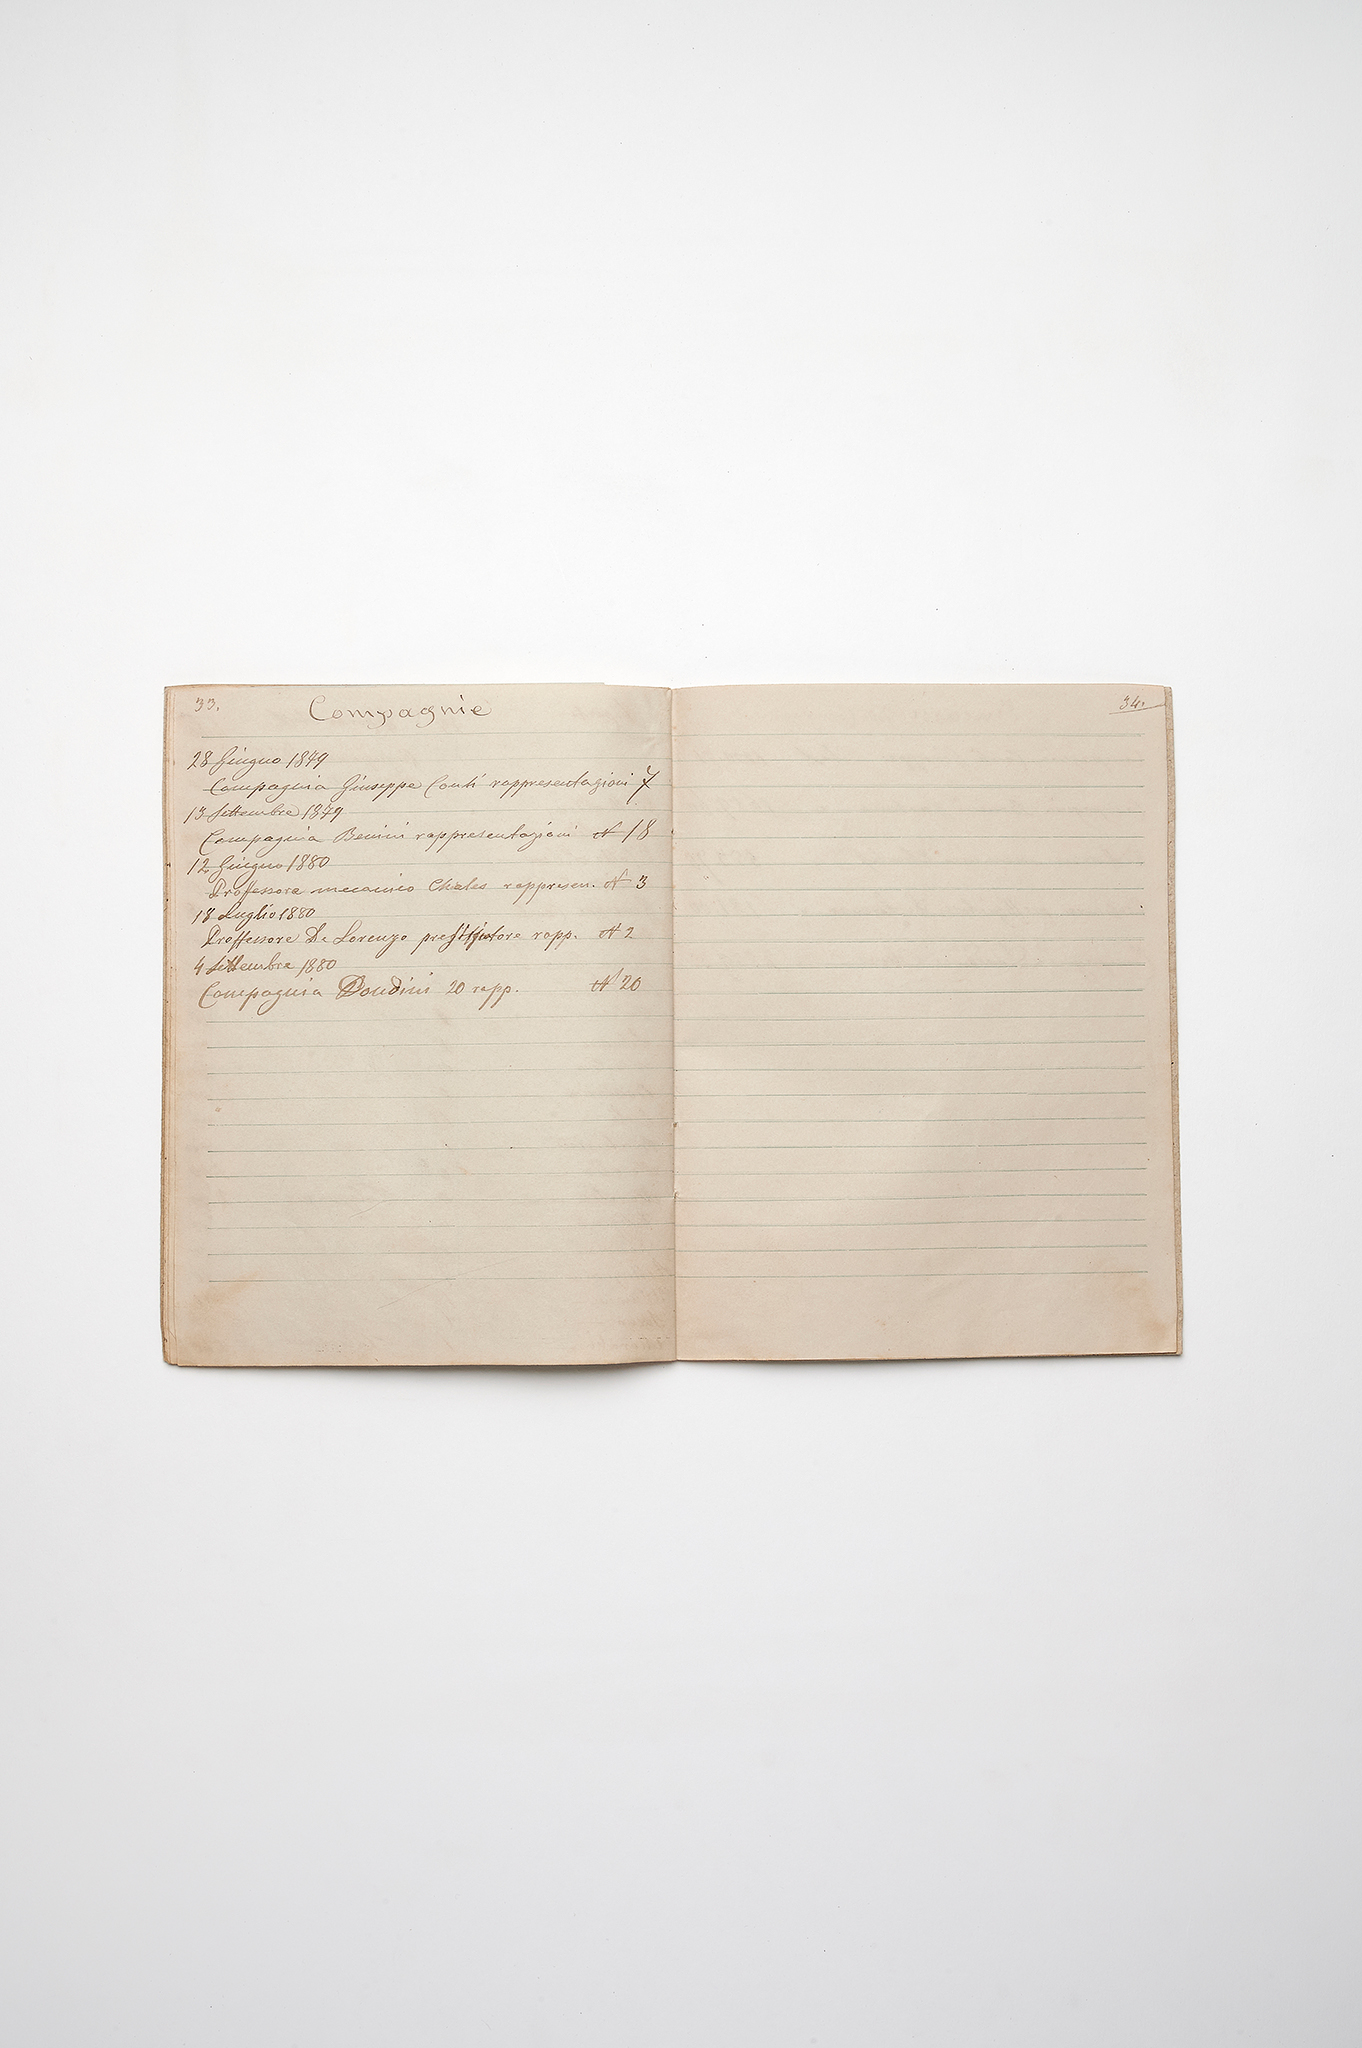 33.
Compagnie
28 Giugno 1879
Compagnia Giuseppe Conti rappresentazioni 7
13 Settembre 1879
Compagnia Benini rappresentazioni N 18
12 Giugno 1880
Proffessore mecanico Cheles rappresen. N 3
18 Luglio 1880
Proffessore De Lorenzo rapp. N 2
4 Settembre 1880
Compagnia Dondini 20 rapp. N 20
34.